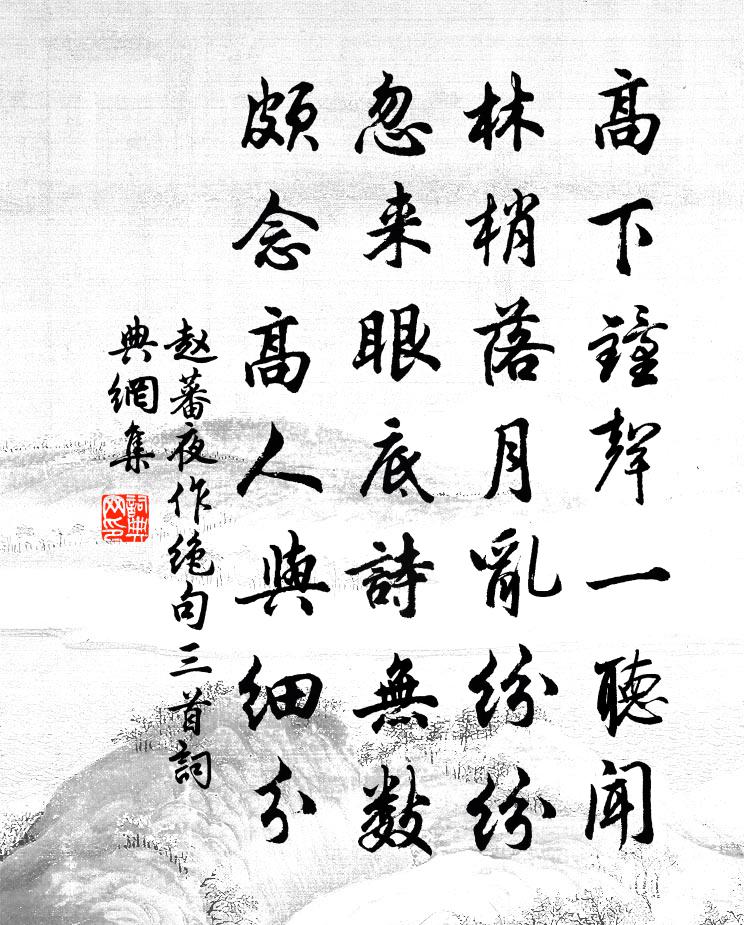 高下鐘聲一聽聞
林梢落月亂紛紛
忽来眼底詩無數
頗念高人與細分
赵蕃夜作绝句三首詞
典網集
詞典網印